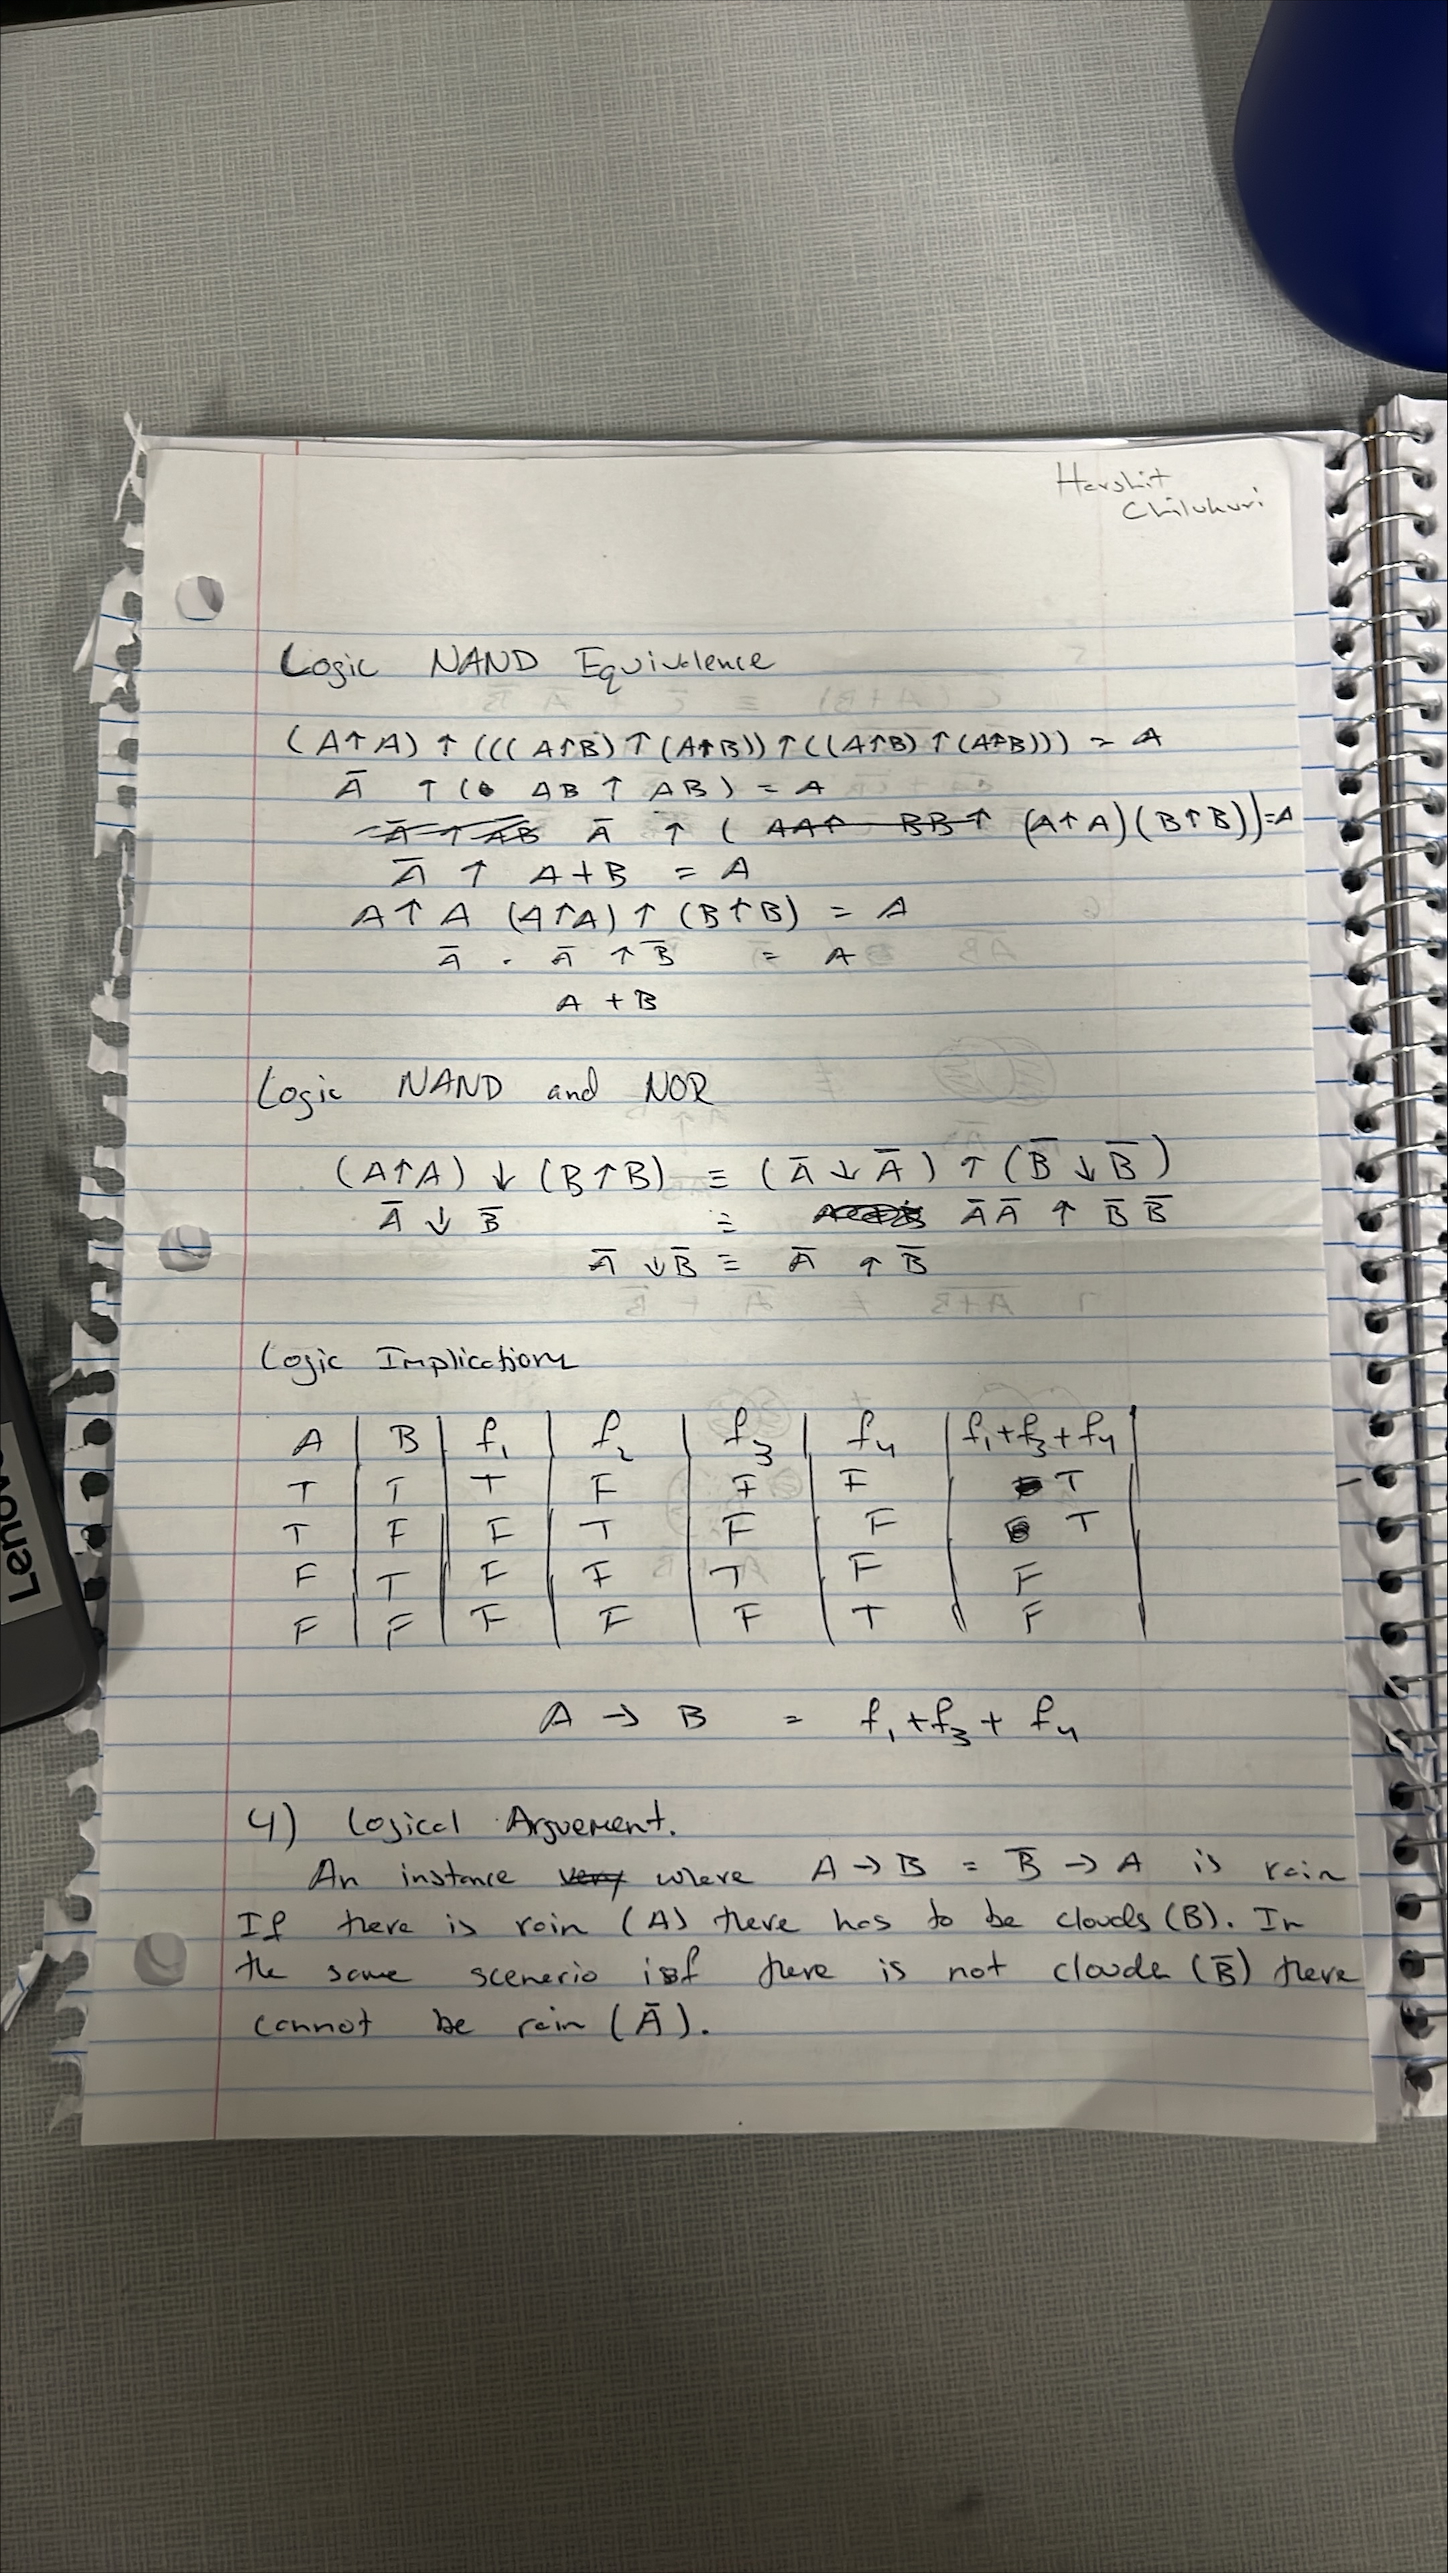 Harshit
Chilukuri
Logic NAND Equivalence
(A↑A) ↑ (((A↑B) ↑ (A↑B)) ↑ ((A↑B) ↑ (A↑B))) = A
Ā ↑ ( AB ↑ AB ) = A
Ā ↑ ( (A↑A)(B↑B)) = A
Ā ↑ A+B = A
A↑A (A↑A) ↑ (B↑B) = A
Ā · Ā ↑ B̄ = A
A + B
Logic NAND and NOR
(A↑A) ↓ (B↑B) ≡ (Ā ↓ Ā) ↑ (B̄ ↓ B̄)
Ā ↓ B̄ ≡ ĀĀ ↑ B̄B̄
Ā ↓ B̄ ≡ Ā ↑ B̄
Logic Implications
A | B | f₁ | f₂ | f₃ | f₄ | f₁+f₃+f₄
T | T | T | F | F | F | T
T | F | F | T | F | F | T
F | T | F | F | T | F | F
F | F | F | F | F | T | F
A → B = f₁+f₃+f₄
4) Logical Arguement.
An instance where A → B = B̄ → A is rain
If there is rain (A) there has to be clouds (B). In
the same scenerio if there is not clouds (B̄) there
cannot be rain (Ā).
Lenovo